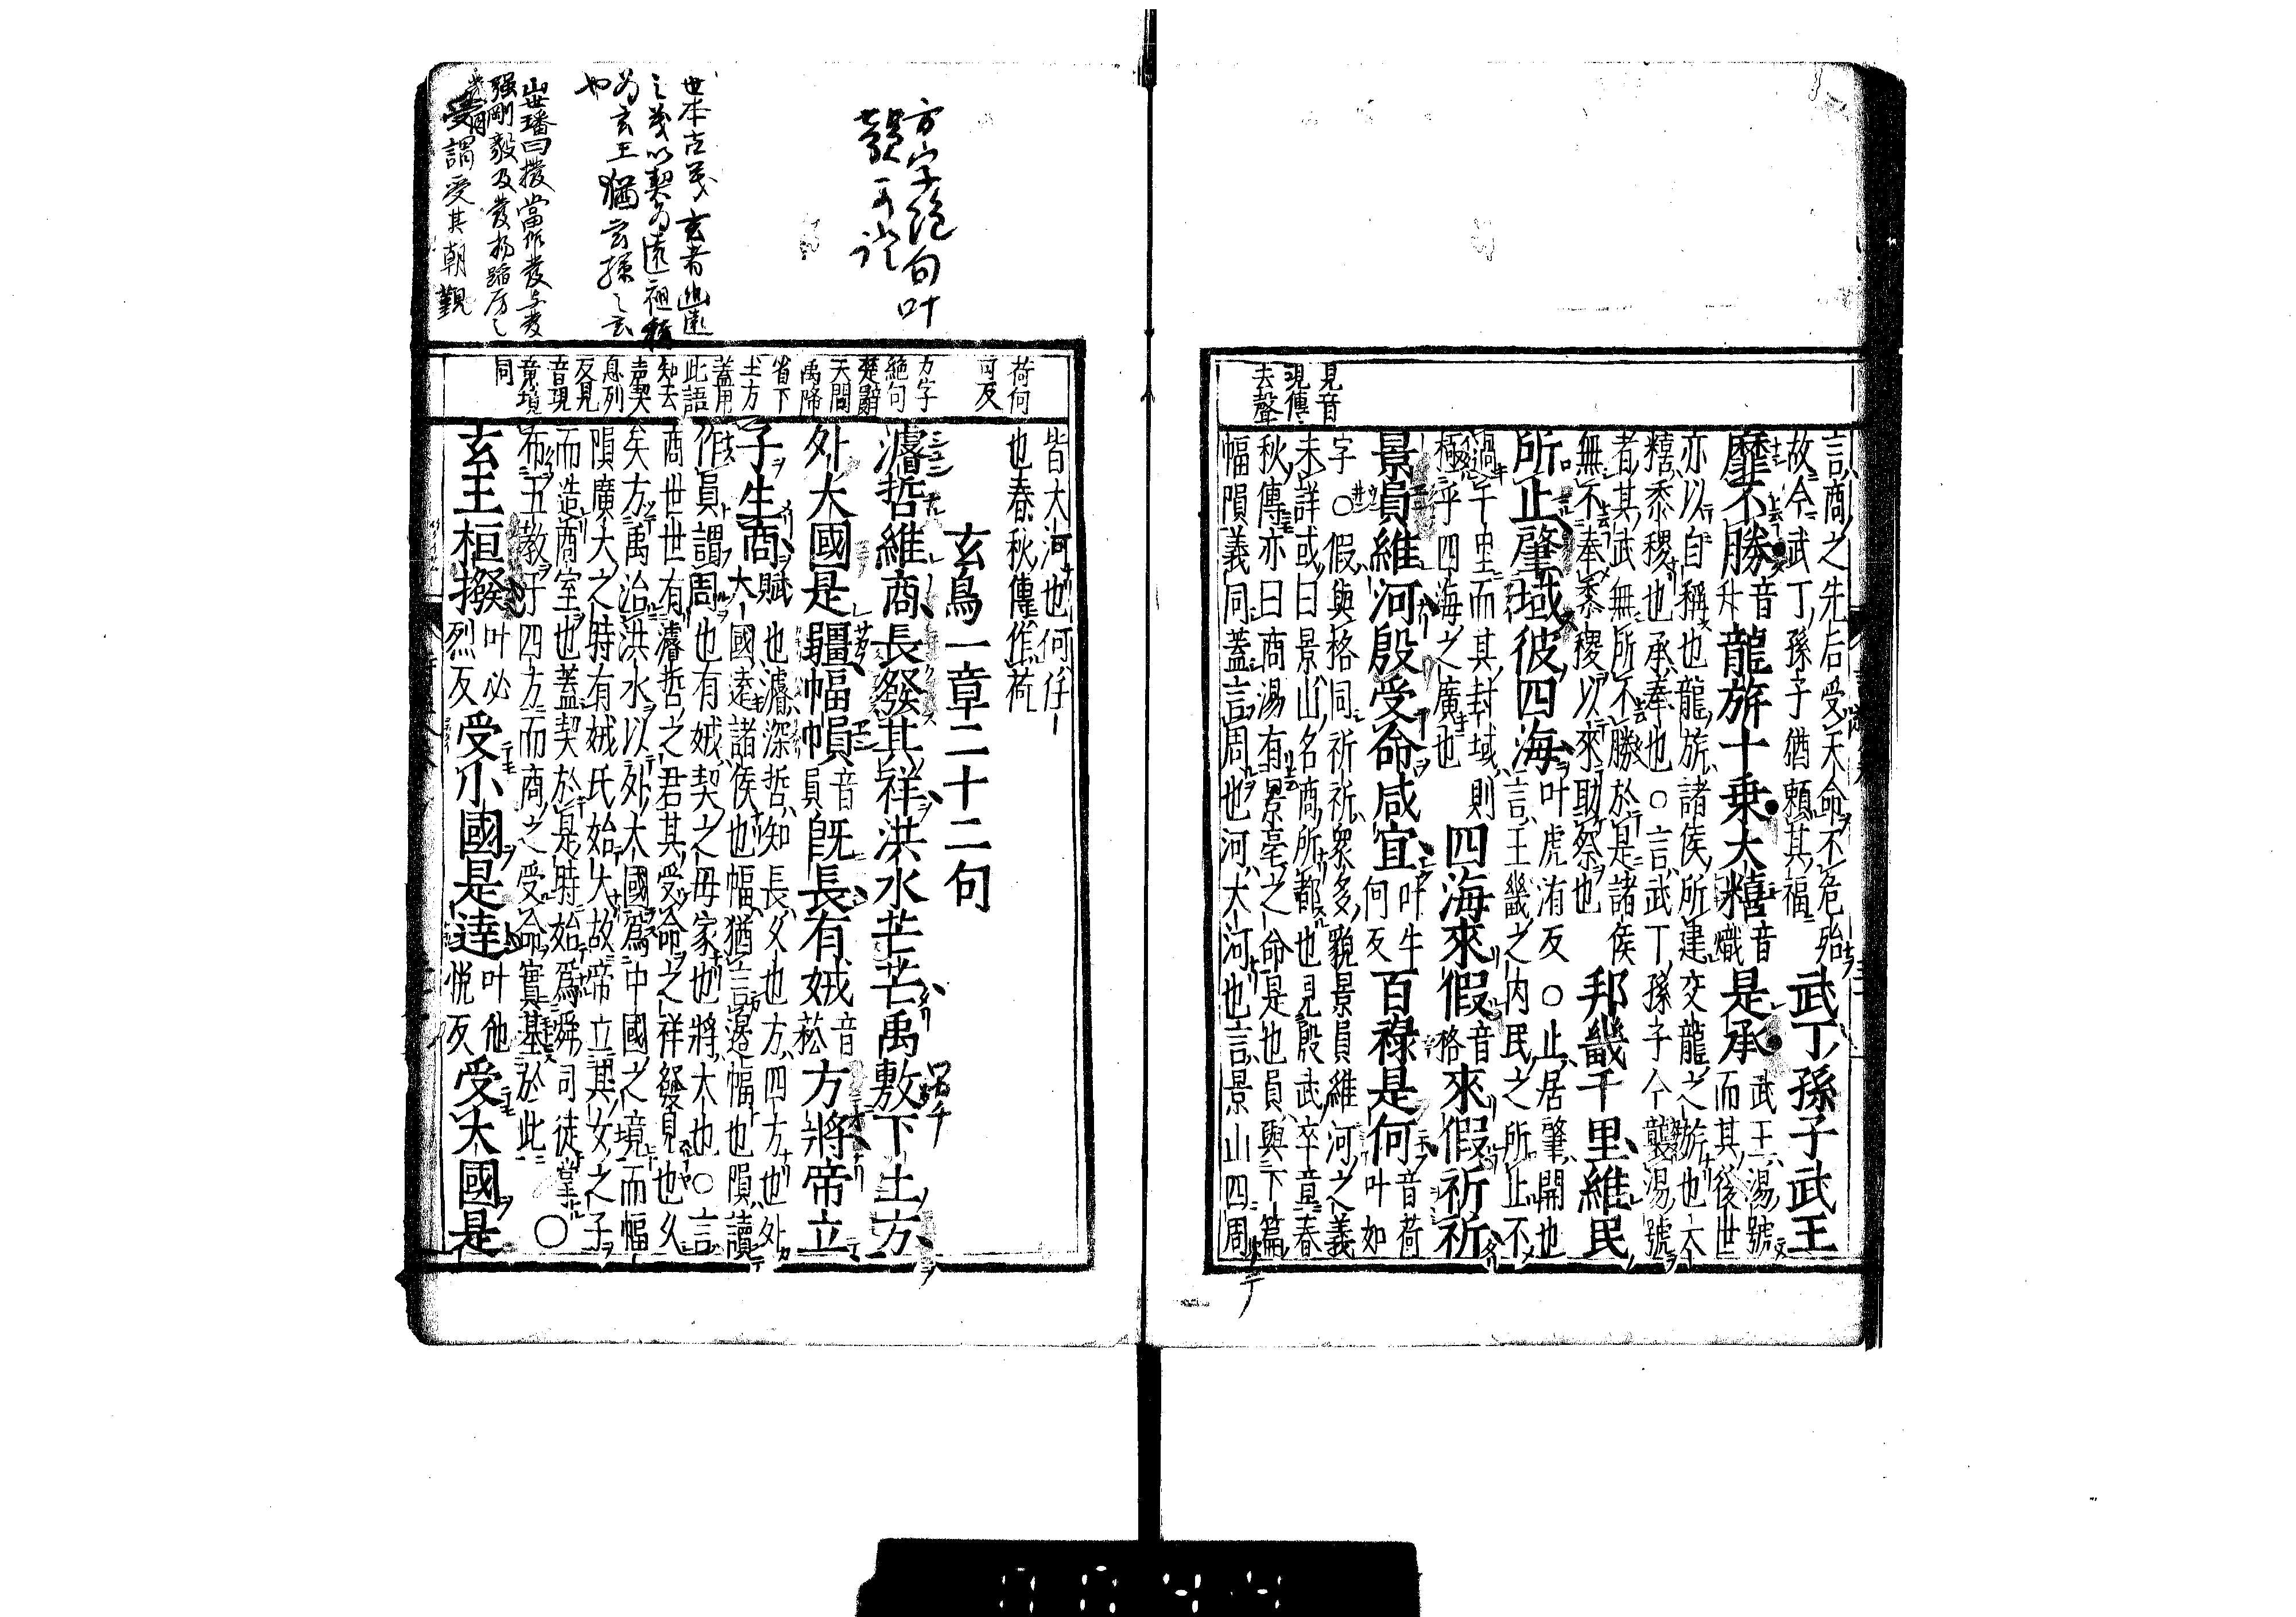 見音
現傳
去聲
言商之先后受天命不危殆
故今武丁孫子猶賴其福
武丁孫子武王
靡不勝
音
升
龍旂十乗大糦
音
熾
是承
武王湯號
而其後世
亦以自稱也龍旂諸侯所建交龍之旂也大
糦黍稷也承奉也○言武丁孫子今襲湯號
者其武無所不勝於是諸侯
無不奉黍稷以來助祭也
邦畿千里維民
所止肇域彼四海
叶虎洧反○止居肇開也
言王畿之内民之所止不
過千里而其封域則
極乎四海之廣也
四海來假
音
格
來假祈祈
景員維河殷受命咸宜
叶牛
何反
百祿是何
音荷
叶如
字○假與格同祈祈衆多貌景員維河之義
未詳或曰景山名商所都也見殷武卒章春
秋傳亦曰商湯有景亳之命是也員與下篇
幅隕義同蓋言周也河大河也言景山四周
荷何
可反
方字
絶句
楚辭
天問
禹降
省下
土方
蓋用
此語
知去
声契
息列
反見
音現
竟境
同
皆大河也何任
也春秋傳作荷
玄鳥一章二十二句
濬哲維商長發其祥洪水芒芒禹敷下土方
外大國是疆幅幀
音
員
旣長有娀
音
菘
方將帝立
子生商
賦也濬深哲知長久也方四方也外
大國遠諸侯也幅猶言邊幅也隕讀
作員謂周也有娀契之母家也將大也○言
商世世有濬哲之君其受命之祥發見也久
矣方禹治洪水以外大國為中國之境而幅
隕廣大之時有娀氏始大故帝立其女之子
而造商室也蓋契於是時始為舜司徒掌
布五教于四方而商之受命實基於此
○
玄王桓撥
叶必
烈反
受小國是達
叶他
悦反
受大國是
方字絶句叶
韻可證
世本古義玄者幽遠
之義以契為遠祖
為玄王猶玄孫之玄
也
曰撥當作發
強剛毅及發揚蹈厲之
受謂受其朝覲